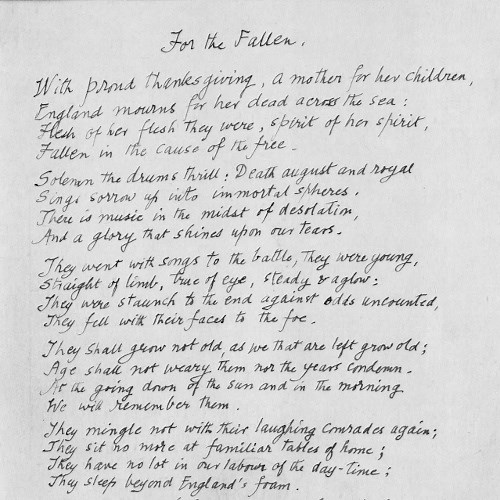 For the Fallen.
With proud thanksgiving, a mother for her children,
England mourns for her dead across the sea:
Flesh of her flesh they were, spirit of her spirit,
Fallen in the cause of the free.
Solemn the drums thrill: Death august and royal
Sings sorrow up into immortal spheres.
There is music in the midst of desolation,
And a glory that shines upon our tears.
They went with songs to the battle, they were young,
Straight of limb, true of eye, steady & aglow:
They were staunch to the end against odds uncounted,
They fell with their faces to the foe.
They shall grow not old, as we that are left grow old;
Age shall not weary them nor the years condemn.
At the going down of the sun and in the morning
We will remember them.
They mingle not with their laughing comrades again;
They sit no more at familiar tables of home;
They have no lot in our labour of the day-time;
They sleep beyond England's foam.